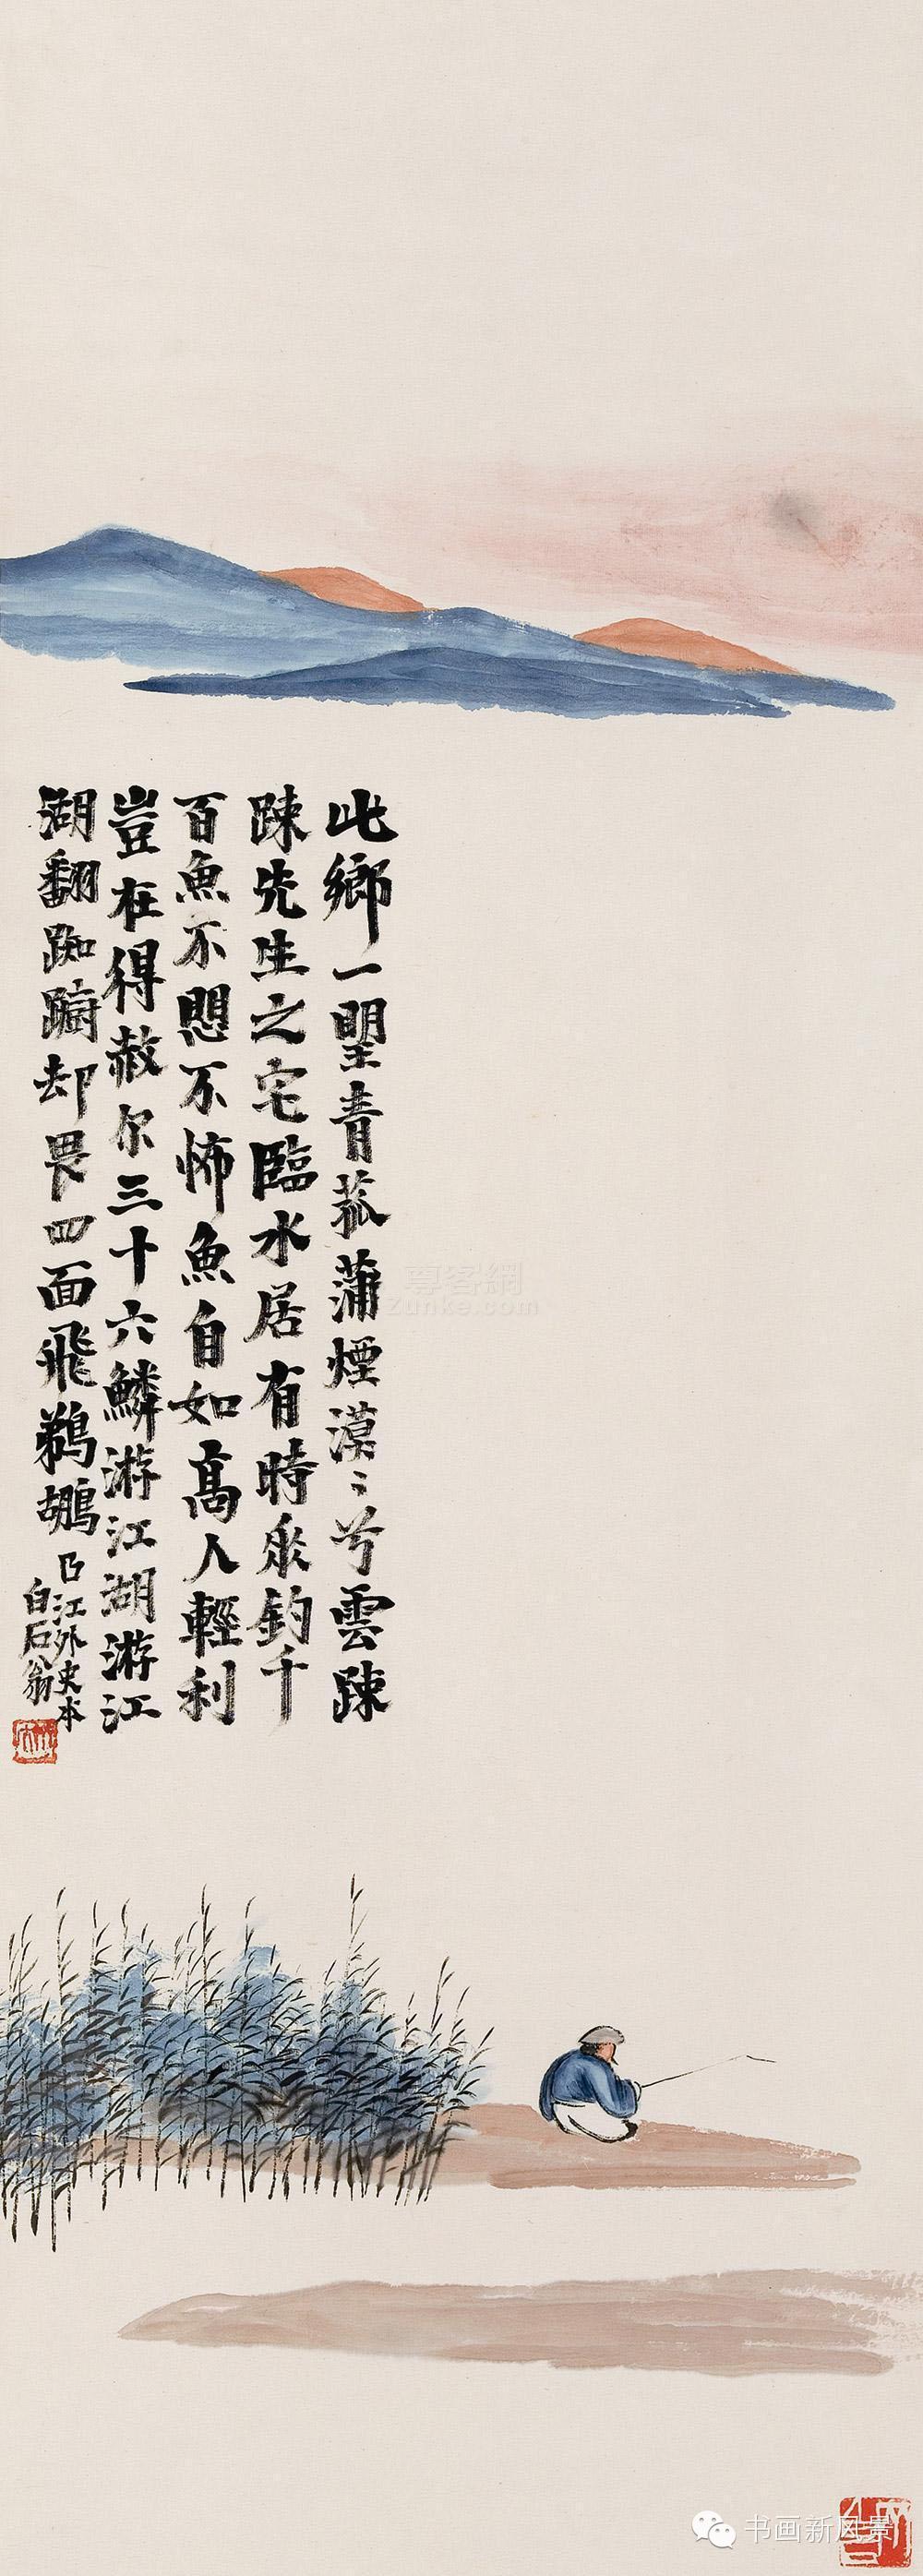 此鄉一望青菰蒲煙漠〻兮雲踈
踈先生之宅臨水居有時垂釣千
百魚不愳不怖魚自如高人輕利
豈在得赦尔三十六鱗游江湖游江
湖翻踟躕却畏四面飛鵜鶘
己江外史本
白石翁
尊客網
zunke.com
书画新风景